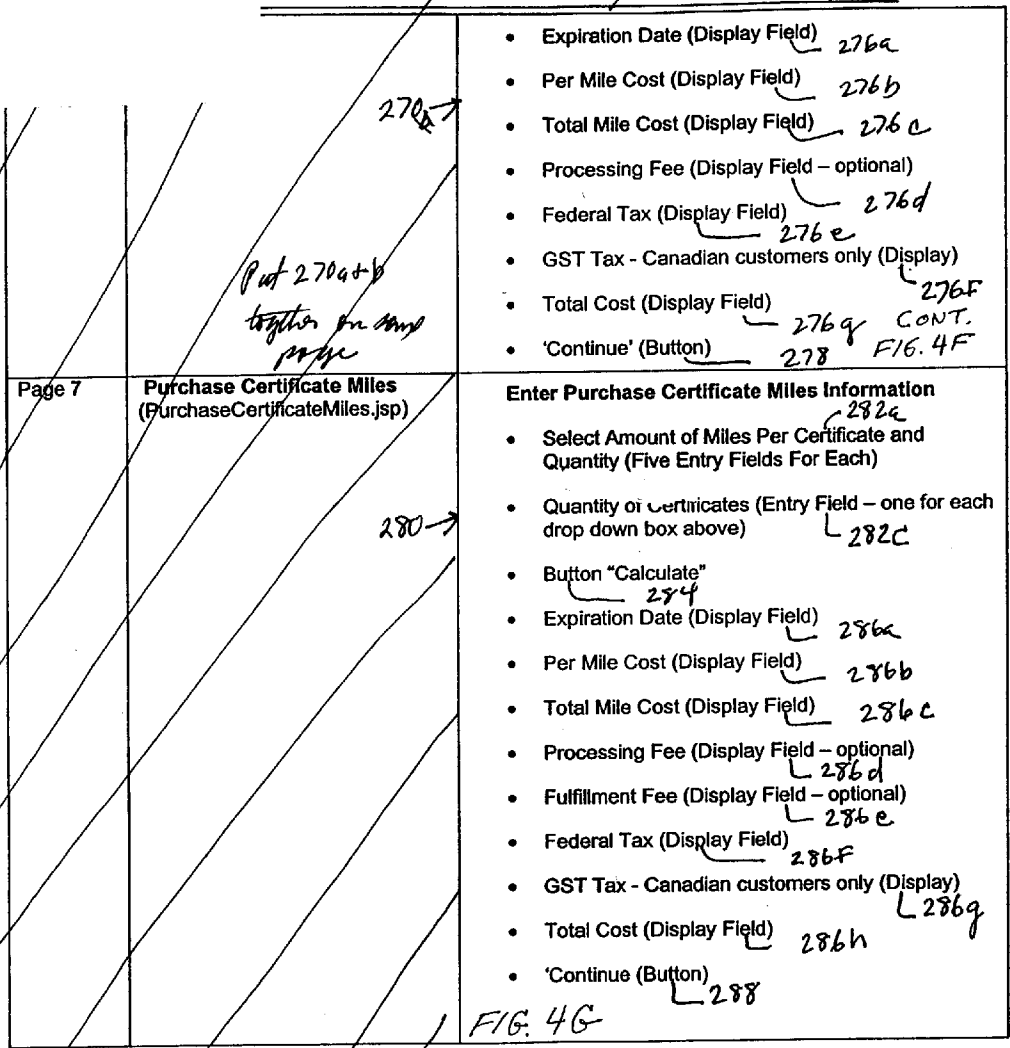 • Expiration Date (Display Field) 276a
• Per Mile Cost (Display Field) 276b
270a
• Total Mile Cost (Display Field) 276c
• Processing Fee (Display Field – optional)
276d
• Federal Tax (Display Field)
276e
• GST Tax - Canadian customers only (Display)
276F
Put 270a+b
together on same
page
• Total Cost (Display Field)
276g CONT.
• 'Continue' (Button) 278 FIG. 4F
Page 7
Purchase Certificate Miles
(PurchaseCertificateMiles.jsp)
Enter Purchase Certificate Miles Information
282a
• Select Amount of Miles Per Certificate and
Quantity (Five Entry Fields For Each)
280
• Quantity of Certificates (Entry Field – one for each
drop down box above) 282C
• Button "Calculate"
284
• Expiration Date (Display Field) 286a
• Per Mile Cost (Display Field) 286b
• Total Mile Cost (Display Field) 286c
• Processing Fee (Display Field – optional)
286d
• Fulfillment Fee (Display Field – optional)
286e
• Federal Tax (Display Field)
286F
• GST Tax - Canadian customers only (Display)
286g
• Total Cost (Display Field) 286h
• 'Continue (Button)
288
FIG. 4G